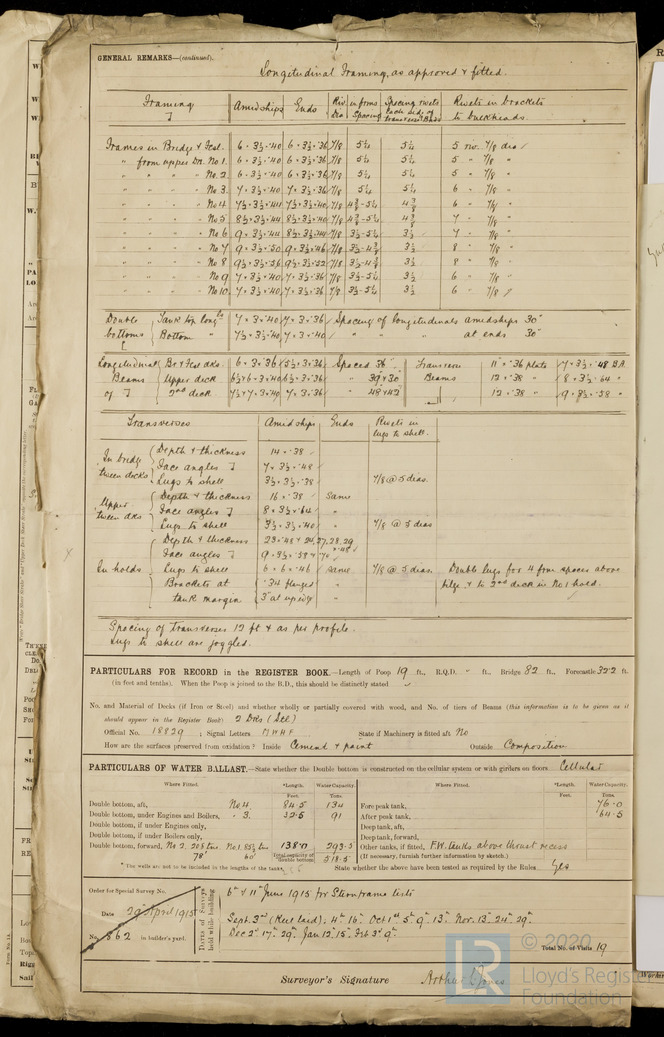 GENERAL REMARKS—(continued).
Longitudinal Framing, as approved & fitted.
Framing Amidships Ends Riv. Dia in frms Spacing Spacing rivets each side of transverse Bhds Rivets in brackets to bulkheads.
Frames in Bridge & Fcsl. 6 × 3½ × ·40 6 × 3½ × ·36 7/8 5¼ 5¼ 5 riv. 7/8 dia
" from upper Dk. No 1. 6 × 3½ × ·40 6 × 3½ × ·36 7/8 5¼ 5¼ 5 " 7/8 "
" " " " No. 2 6 × 3½ × ·40 6 × 3½ × ·36 7/8 5¼ 5¼ 5 " 7/8 "
" " " " No 3. 7 × 3½ × ·40 7 × 3½ × ·36 7/8 5¼ 5¼ 6 " 7/8 "
" " " " No 4 7½ × 3½ × ·44 7½ × 3½ × ·40 7/8 4⅜-5¼ 4⅜ 6 " 7/8 "
" " " " No 5 8½ × 3½ × ·44 8½ × 3½ × ·40 7/8 4⅜-5¼ 4⅜ 7 " 7/8 "
" " " " No 6 9 × 3½ × ·44 8½ × 3½ × ·44 7/8 3½-5¼ 3½ 7 " 7/8 "
" " " " No 7 9 × 3½ × ·50 9 × 3½ × ·46 7/8 3½-4⅜ 3½ 8 " 7/8 "
" " " " No 8 9½ × 3½ × ·56 9½ × 3½ × ·52 7/8 3½-4⅜ 3½ 8 " 7/8 "
" " " " No 9 7 × 3½ × ·40 7 × 3½ × ·36 7/8 3½-5¼ 3½ 6 " 7/8 "
" " " " No 10 7 × 3½ × ·40 7 × 3½ × ·36 7/8 3½-5¼ 3½ 6 " 7/8 "
Double Tank top longls 7 × 3½ × ·40 7 × 3½ × ·36 Spacing of longitudinals amidships 30"
bottoms Bottom " 7½ × 3½ × ·40 7 × 3½ × ·40 " " " at ends 30"
Longitudinal Br & Fcsl dks. 6 × 3 × ·36 5½ × 3 × ·36 Spaced 36" Transverse 11" × ·36 plate 7 × 3½ × ·48 B.A.
Beams Upper deck 6½ × 3 × ·40 6½ × 3 × ·36 " 39 & 30 Beams 12 × ·38 " 8 × 3½ × ·54 "
of 2nd deck 7½ × 3 × ·40 7 × 3 × ·36 " 48 & 42 12 × ·38 " 9 × 3½ × ·58 "
Transverses Amidships Ends Rivets in lugs to shell.
In bridge tween decks Depth & thickness 14 × ·38
Face angles 7 × 3½ × ·48
Lugs to shell 3½ × 3½ × ·38 7/8 @ 5 dias.
Upper tween dks Depth & thickness 16 × ·38 Same
Face angles 8 × 3½ × ·54 "
Lugs to shell 3½ × 3½ × ·40 " 7/8 @ 5 dias
In holds Depth & thickness 23 × ·48 & 24, 27, 28, 29 × ·48
Face angles 9 × 3½ × ·58 "
Lugs to shell 6 × 6 × ·46 same 7/8 @ 5 dias. Double lugs for 4 frm spaces above
Brackets at ·34 flanged " bilge & to 2nd deck in No 1 hold.
tank margin 3" at upside "
Spacing of transverses 12 ft & as per profile.
Lugs to shell are joggled.
PARTICULARS FOR RECORD in the REGISTER BOOK.—Length of Poop 19 ft., R.Q.D. " ft., Bridge 82 ft., Forecastle 32·2 ft.
(in feet and tenths). When the Poop is joined to the B.D., this should be distinctly stated
No. and Material of Decks (if Iron or Steel) and whether wholly or partially covered with wood, and No. of tiers of Beams (this information is to be given as it
should appear in the Register Book) 2 Dks (Stl)
Official No. 18829 ; Signal Letters MWHF State if Machinery is fitted aft No
How are the surfaces preserved from oxidation? Inside Cement & paint Outside Composition
PARTICULARS OF WATER BALLAST.—State whether the Double bottom is constructed on the cellular system or with girders on floors Cellular
Where Fitted. *Length. Feet. Water Capacity. Tons. Where Fitted. *Length. Feet. Water Capacity. Tons.
Double bottom, aft, No 4. 84·5 134 Fore peak tank, 76·0
Double bottom, under Engines and Boilers, " 3. 32·5 91 After peak tank, 64·5
Double bottom, if under Engines only, Deep tank, aft,
Double bottom, if under Boilers only, Deep tank, forward,
Double bottom, forward, 138·0 293·5 Other tanks, if fitted, F.W. tanks above thrust recess
78' 60' Total capacity of double bottom 518·5 (If necessary, furnish further information by sketch.)
* The wells are not to be included in the lengths of the tanks. State whether the above have been tested as required by the Rules Yes
Order for Special Survey No.
Date 29th April 1915
No. 862 in builder's yard.
Dates of Surveys held while building
6th & 11th June 1915 for Sternframe tests
Sept. 3rd (Keel laid). 4th 16th Oct 1st 5th 9th 13th Nov. 13th 24th 29th
Dec 2nd 17th 29th Jan 12th 15th Feb 3rd 9th
Total No. of Visits 19
Surveyor's Signature Arthur Jones
LR
© 2020
Lloyd's Register
Foundation